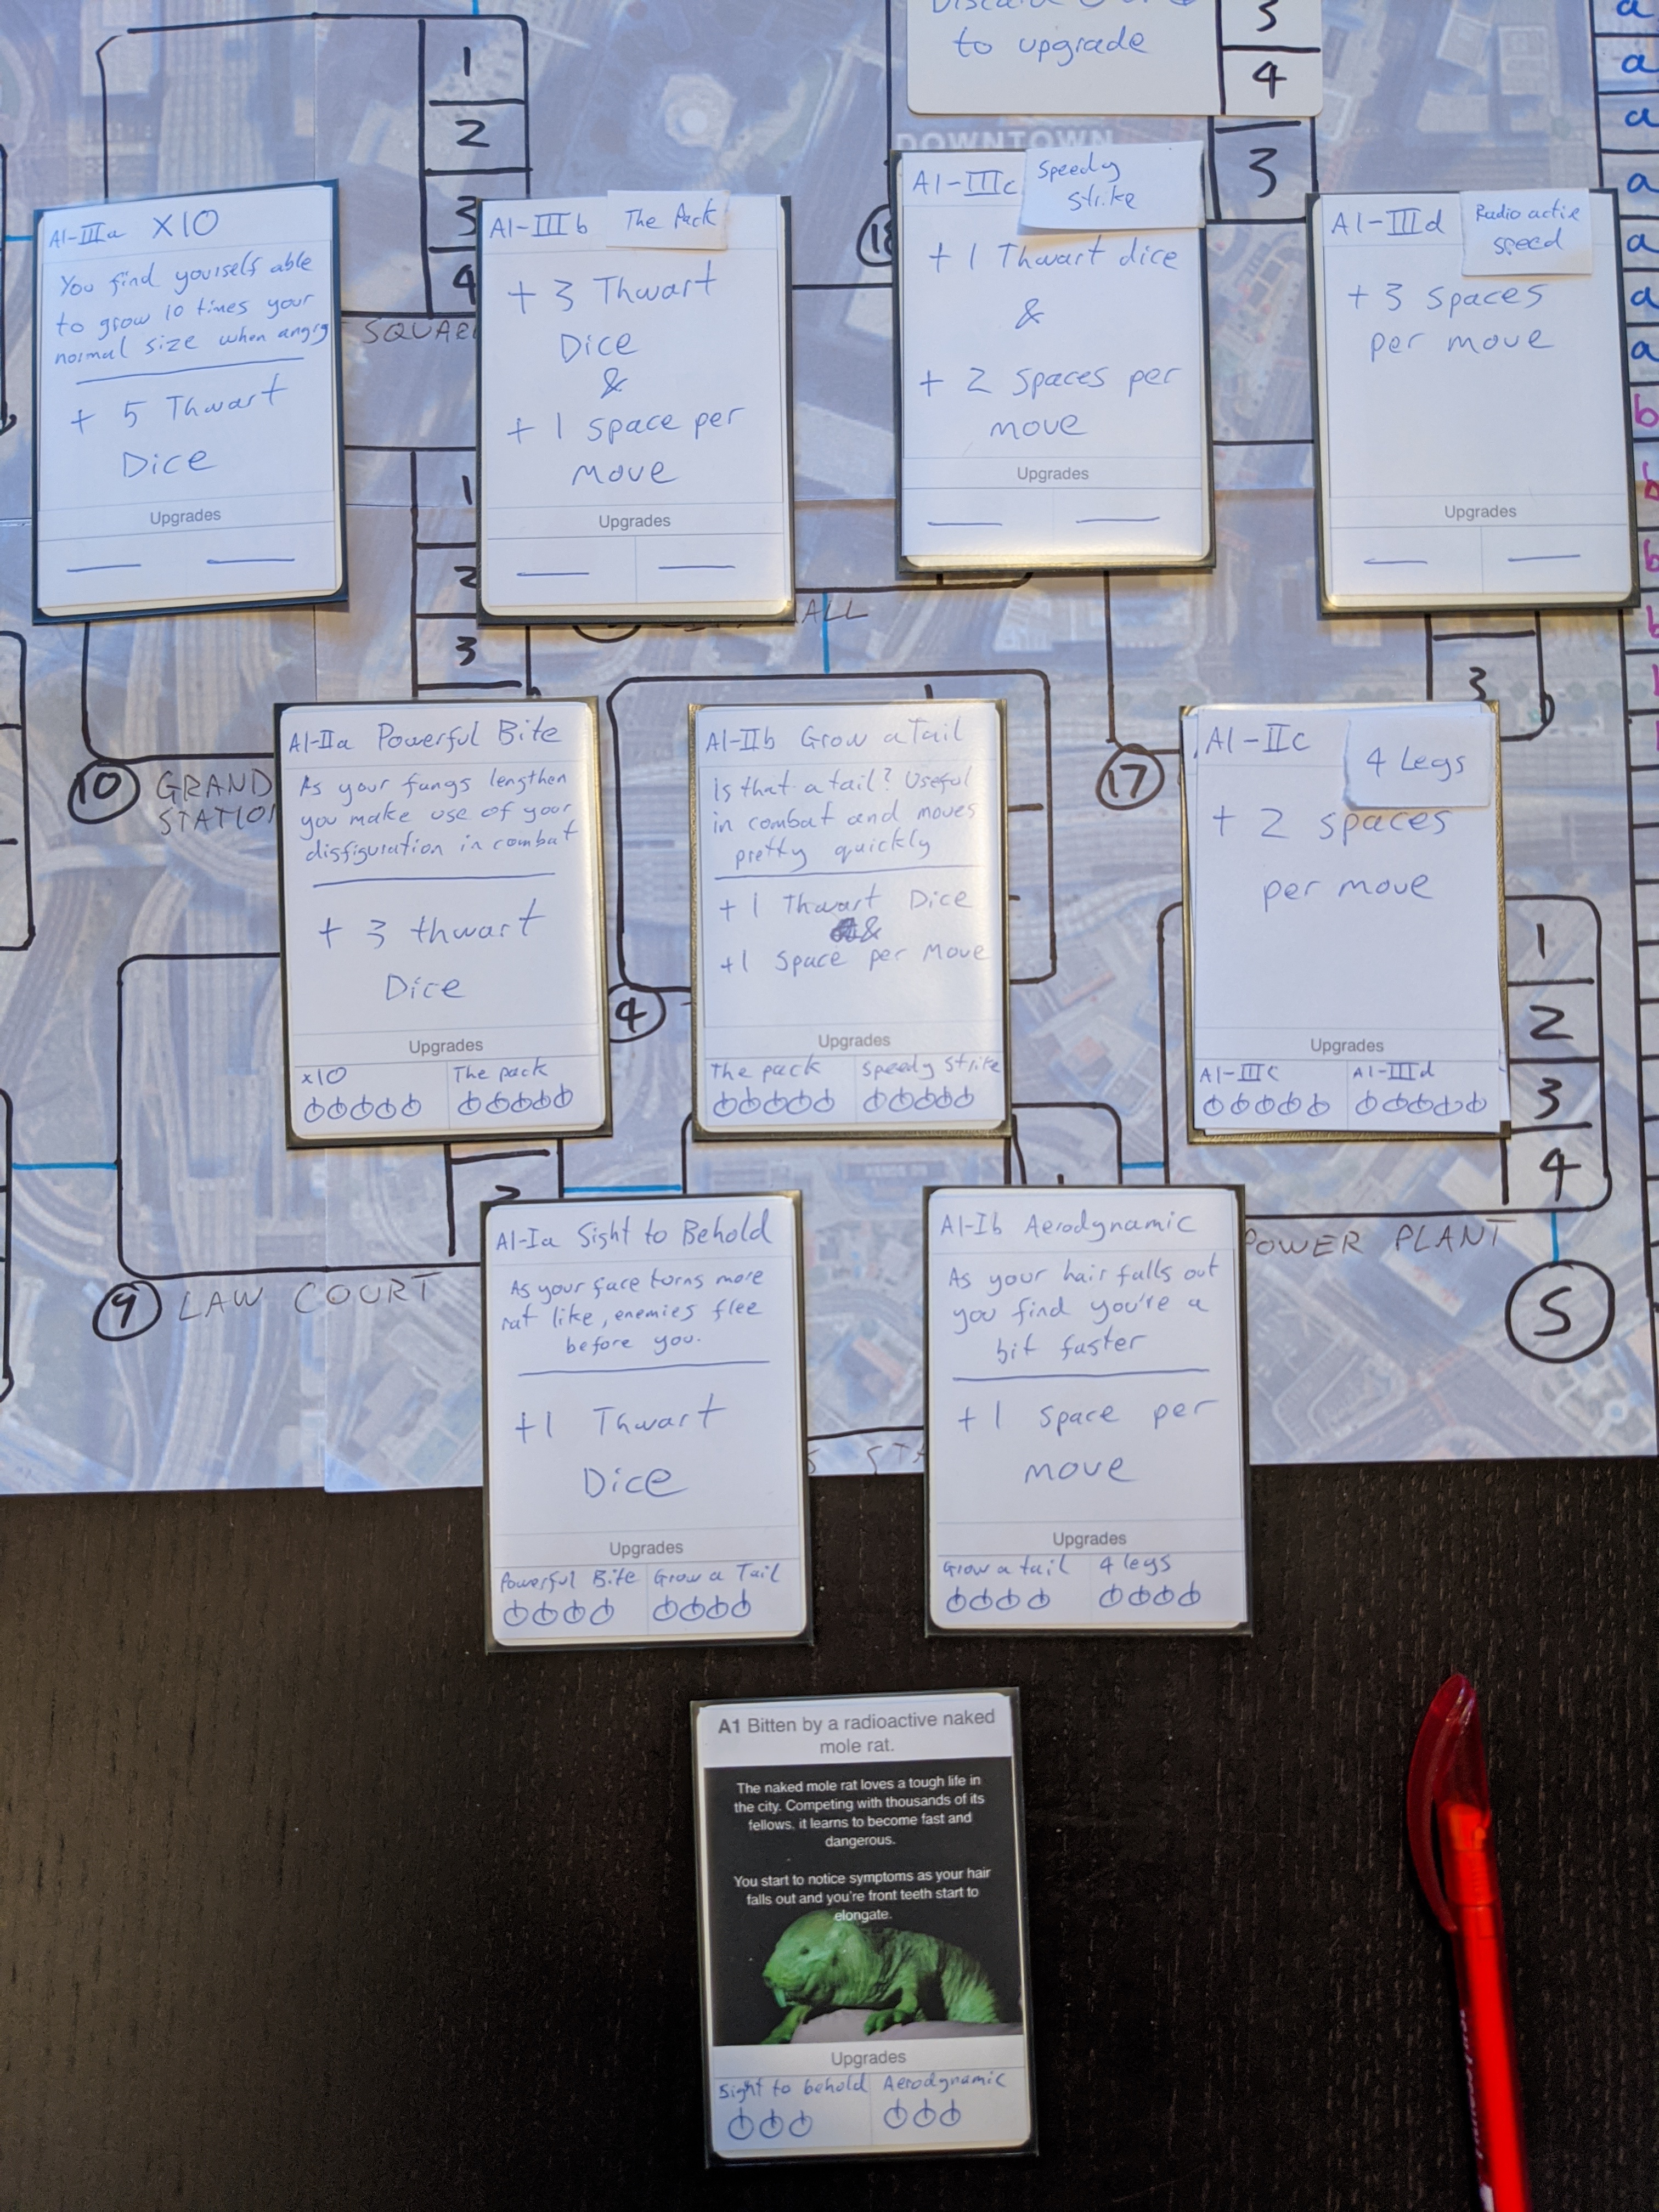 to upgrade
3
4
3
DOWNTOWN
1
2
3
4
SQUA
a
a
a
a
a
a
a
b
b
b
b
A1-IIIa X10
You find yourself able
to grow 10 times your
normal size when angry
+ 5 Thwart
Dice
Upgrades
A1-IIIb The Pack
+ 3 Thwart
Dice
&
+ 1 space per
Move
Upgrades
A1-IIIc Speedy
strike
+ 1 Thwart dice
&
+ 2 spaces per
move
Upgrades
A1-IIId Radio active
speed
+ 3 spaces
per move
Upgrades
1
2
3
ALL
3
10 GRAND
STATIO
17
4
A1-IIa Powerful Bite
As your fangs lengthen
you make use of your
disfiguration in combat
+ 3 thwart
Dice
Upgrades
x10 The pack
A1-IIb Grow a Tail
Is that a tail? Useful
in combat and moves
pretty quickly
+ 1 Thwart Dice
&
+1 Space per Move
Upgrades
The pack Speedy Strike
A1-IIc 4 Legs
+ 2 spaces
per move
Upgrades
A1-IIIc A1-IIId
1
2
3
4
9 LAW COURT
POWER PLANT
S
A1-Ia Sight to Behold
As your face turns more
rat like, enemies flee
before you.
+1 Thwart
Dice
Upgrades
Powerful Bite Grow a Tail
A1-Ib Aerodynamic
As your hair falls out
you find you're a
bit faster
+ 1 space per
move
Upgrades
Grow a tail 4 legs
A1 Bitten by a radioactive naked
mole rat.
The naked mole rat loves a tough life in
the city. Competing with thousands of its
fellows, it learns to become fast and
dangerous.
You start to notice symptoms as your hair
falls out and you're front teeth start to
elongate.
Upgrades
Sight to behold Aerodynamic